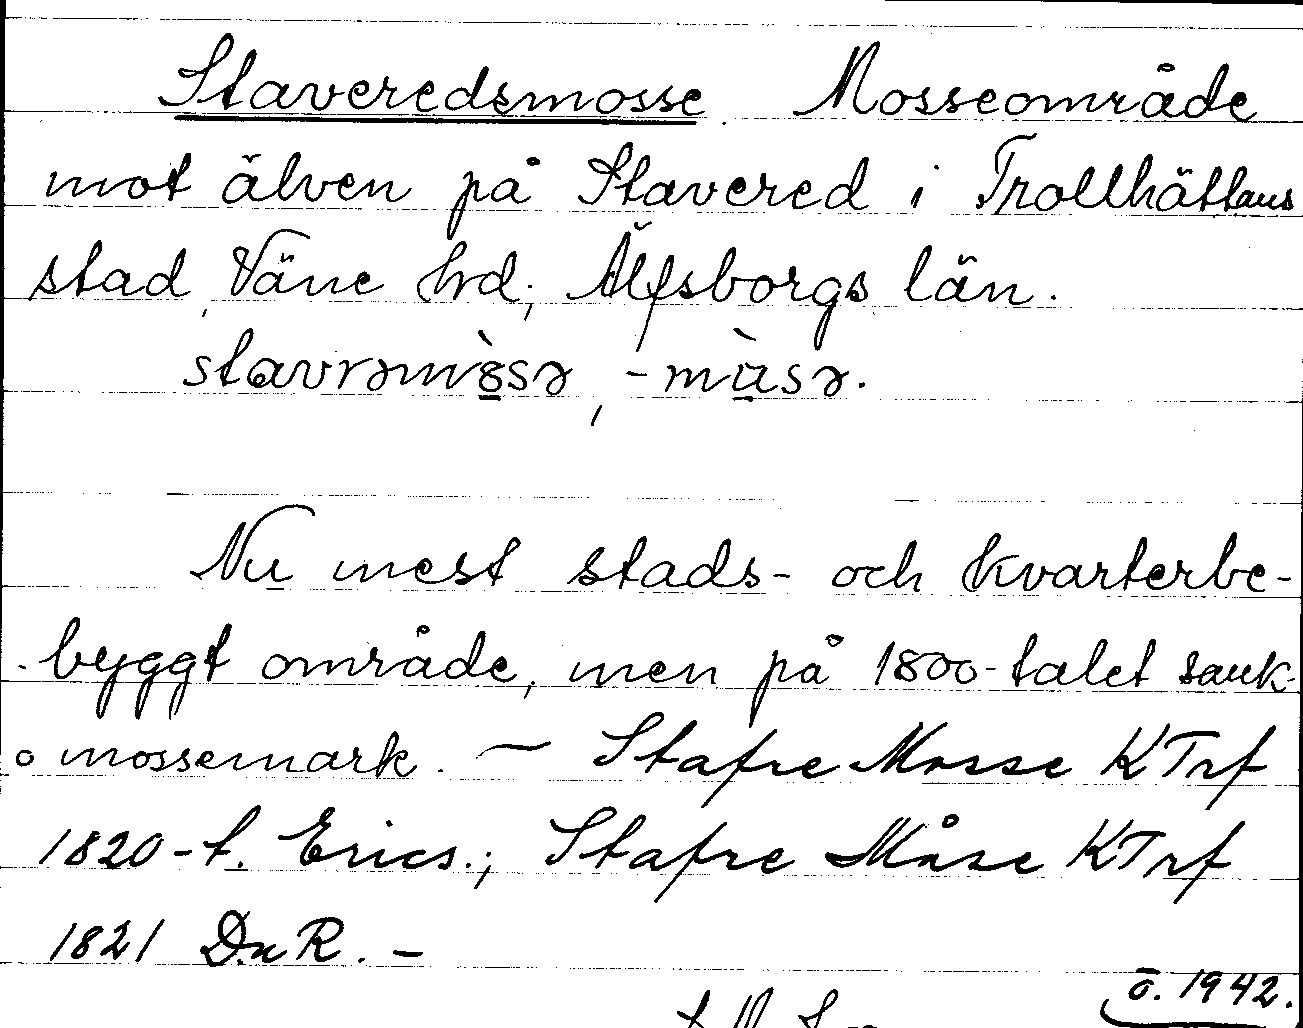 Staveredsmosse. Mosseområde
mot älven på Stavered i Trollhättans
stad, Väne hd, Älfsborgs län.
stavrəmòsə, -mùsə.
Nu mest stads- och kvarterbe-
byggt område, men på 1800-talet sank-
o mossemark. – Stafre Mosse KTrf
1820-t. Erics.; Stafre Måse KTrf
1821 DuR. –
ö. 1942.